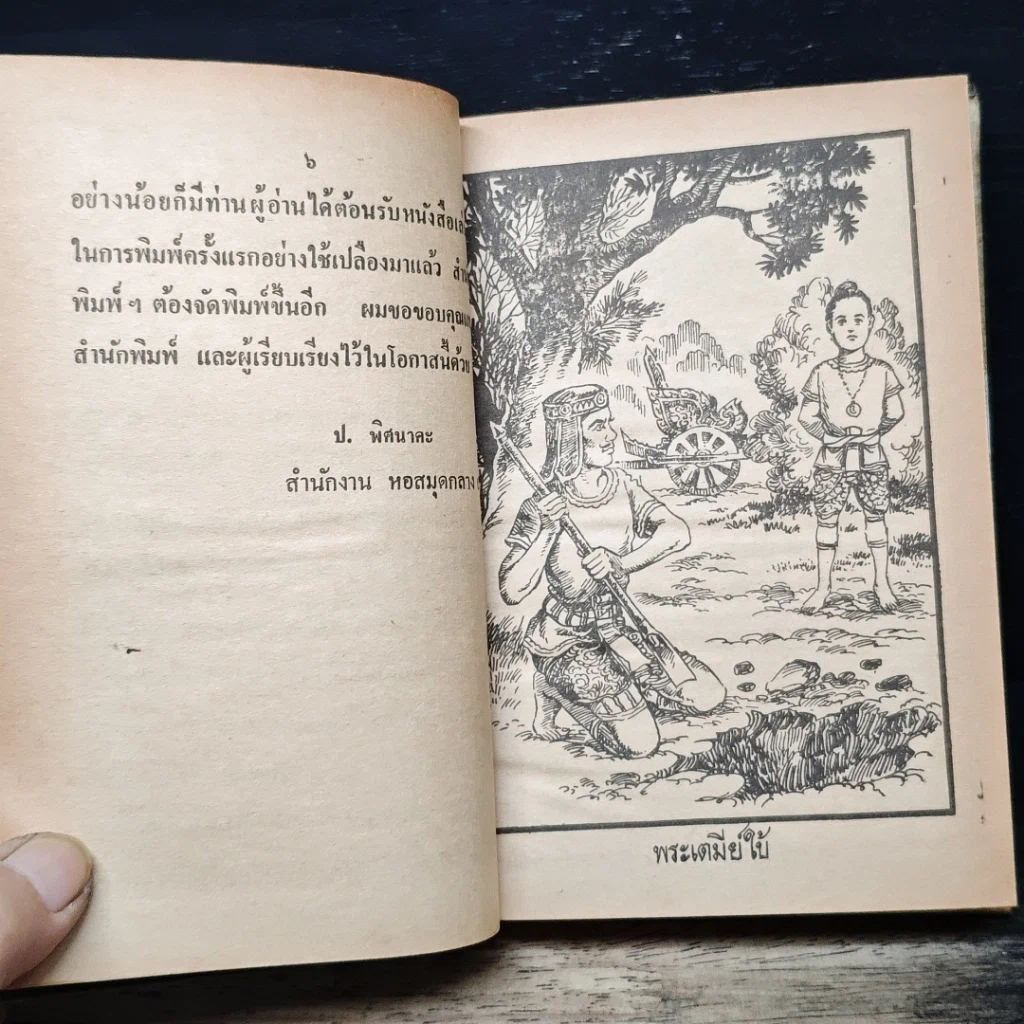 ๖
อย่างน้อยก็มีท่านผู้อ่านได้ต้อนรับหนังสือ
ในการพิมพ์ครั้งแรกอย่างใช้เปลืองมาแล้ว
พิมพ์ ๆ ต้องจัดพิมพ์ขึ้นอีก ผมขอขอบคุณ
สำนักพิมพ์ และผู้เรียบเรียงไว้ในโอกาสนี้ด้วย
ป. พิศนาคะ
สำนักงาน หอสมุดกลาง
พระเตมีย์ใบ้